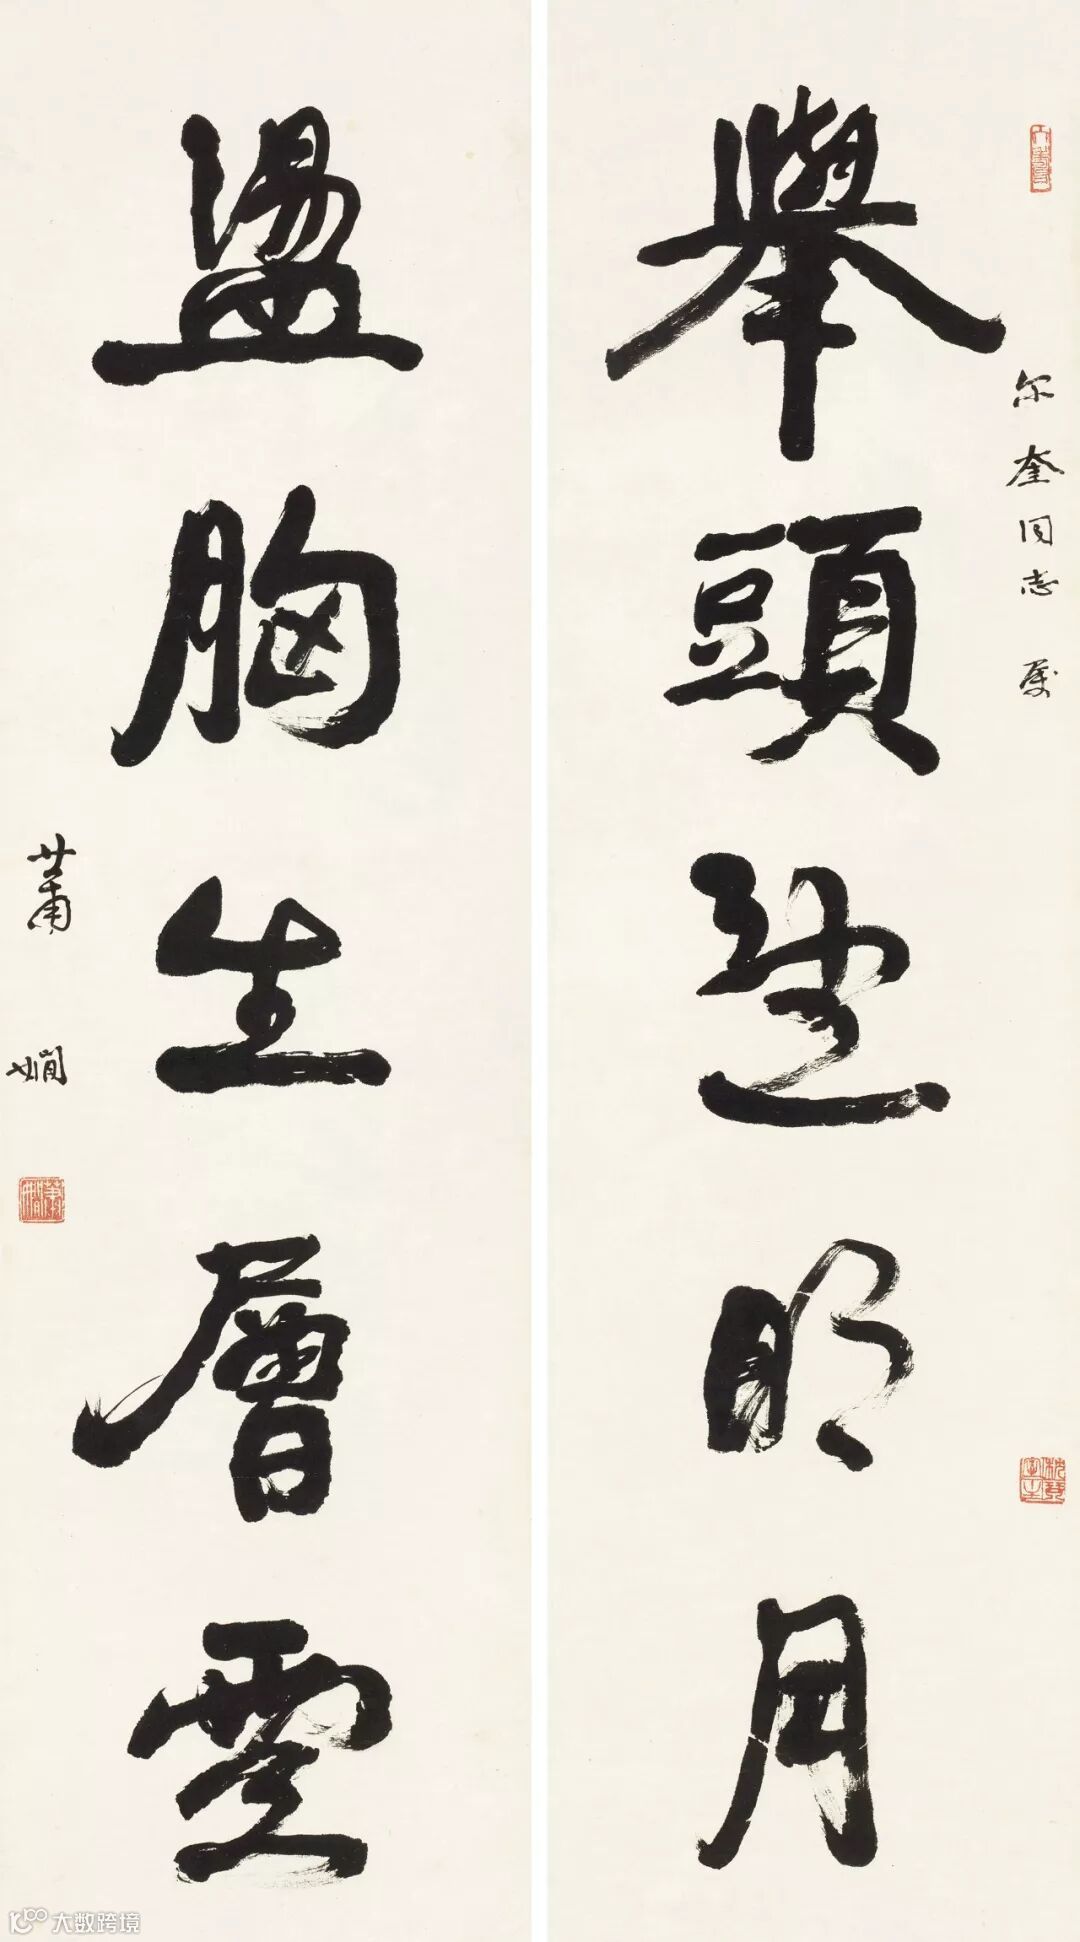 舉頭望明月
尔奎同志屬
盪胸生層雲
蕭嫻
蕭嫻
大数跨境